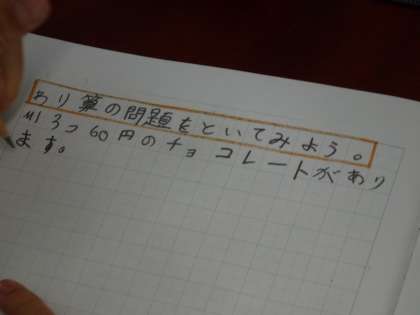 わり算の問題をといてみよう。
M1 3つ60円のチョコレートがあり
ます。